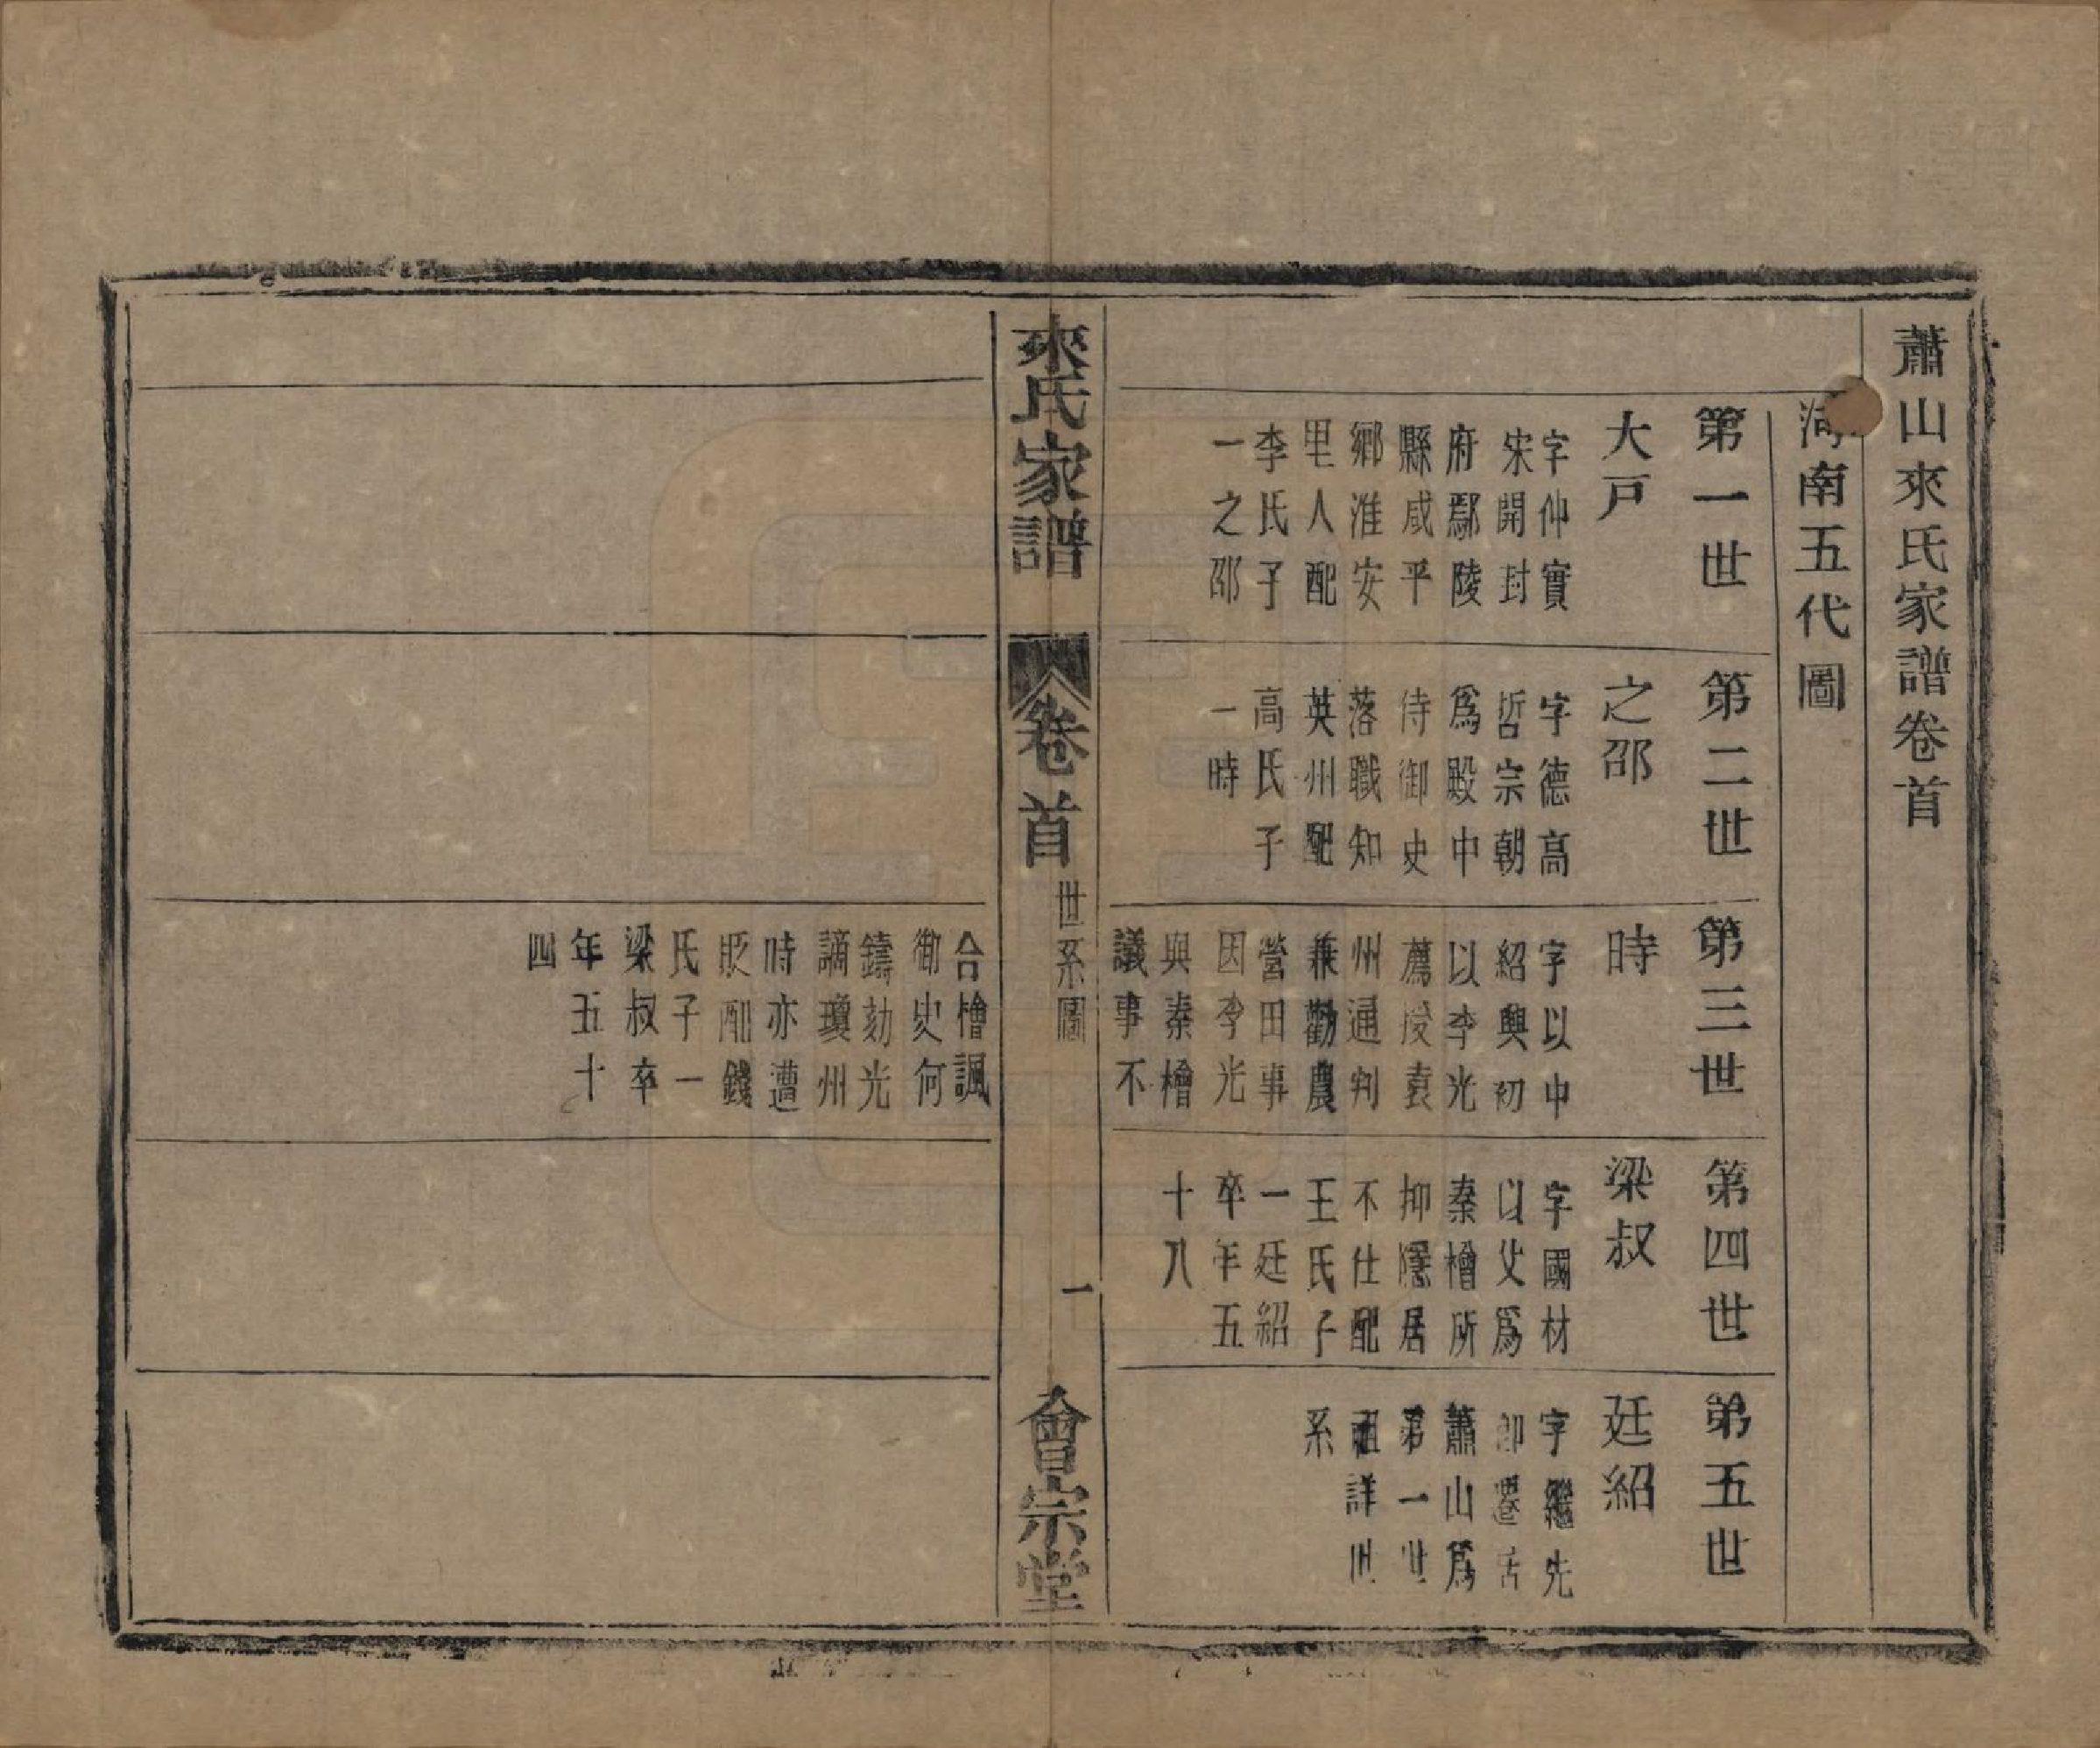 蕭山來氏家譜卷首
河南五代圖
第一世
大戸
字仲實
宋開封
府鄢陵
縣咸平
鄉淮安
里人配
李氏子
一之邵
第二世
之邵
字德高
哲宗朝
爲殿中
侍御史
落職知
英州配
高氏子
一時
第三世
時
字以中
紹興初
以李光
薦授袁
州通判
兼勸農
營田事
因李光
與秦檜
議事不
合檜諷
御史何
鑄劾光
謫瓊州
時亦遭
貶配錢
氏子一
梁叔卒
年五十
四
第四世
梁叔
字國材
以父爲
秦檜所
抑隱居
不仕配
王氏子
一廷紹
卒年五
十八
第五世
廷紹
字繼先
卽遷居
蕭山爲
第一世
祖詳世
系
來氏家譜
卷首
世系圖
一
會宗堂